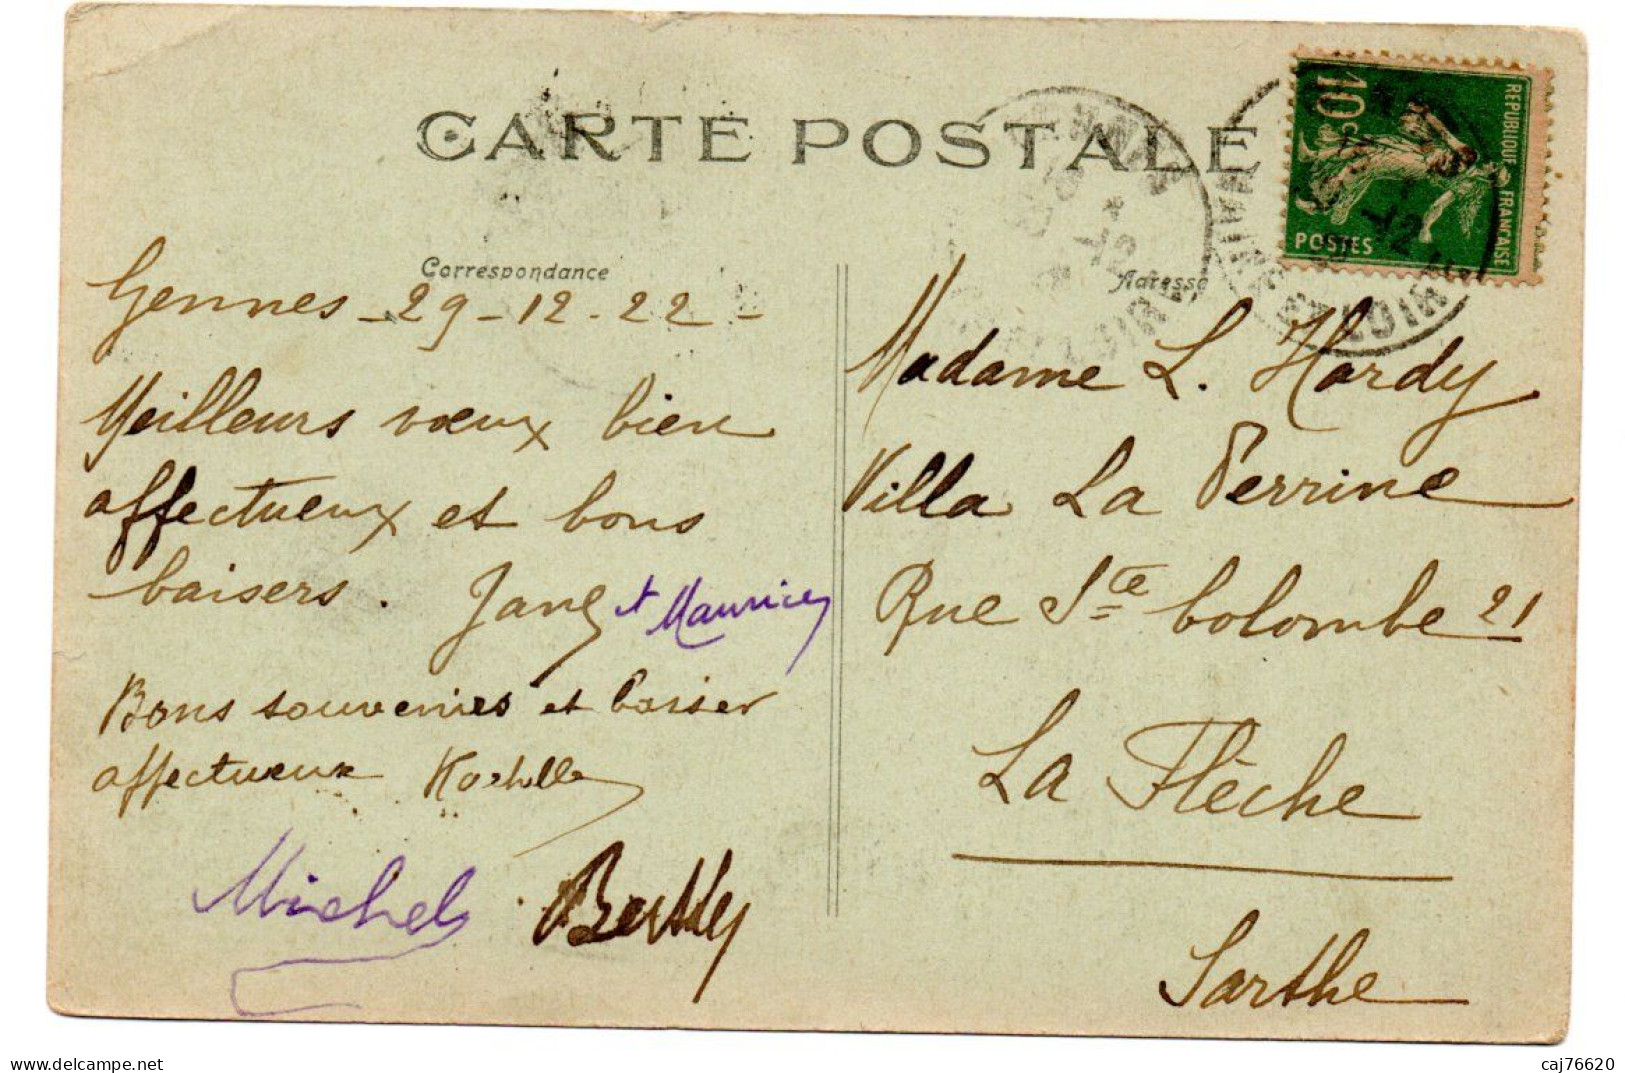 CARTE POSTALE
Correspondance
Gennes - 29 - 12 - 22 -
Meilleurs vœux bien
affectueux et bons
baisers. Jane et Maurice
Bons souvenirs et baiser
affectueux
Michel Berthe
Adresse
REPUBLIQUE FRANÇAISE
10c
POSTES
MAINE ET LOIRE
Madame L. Hardy
Villa La Perrine
Rue Ste Colombe 21
La Flèche
Sarthe
delcampe.net
caj76620